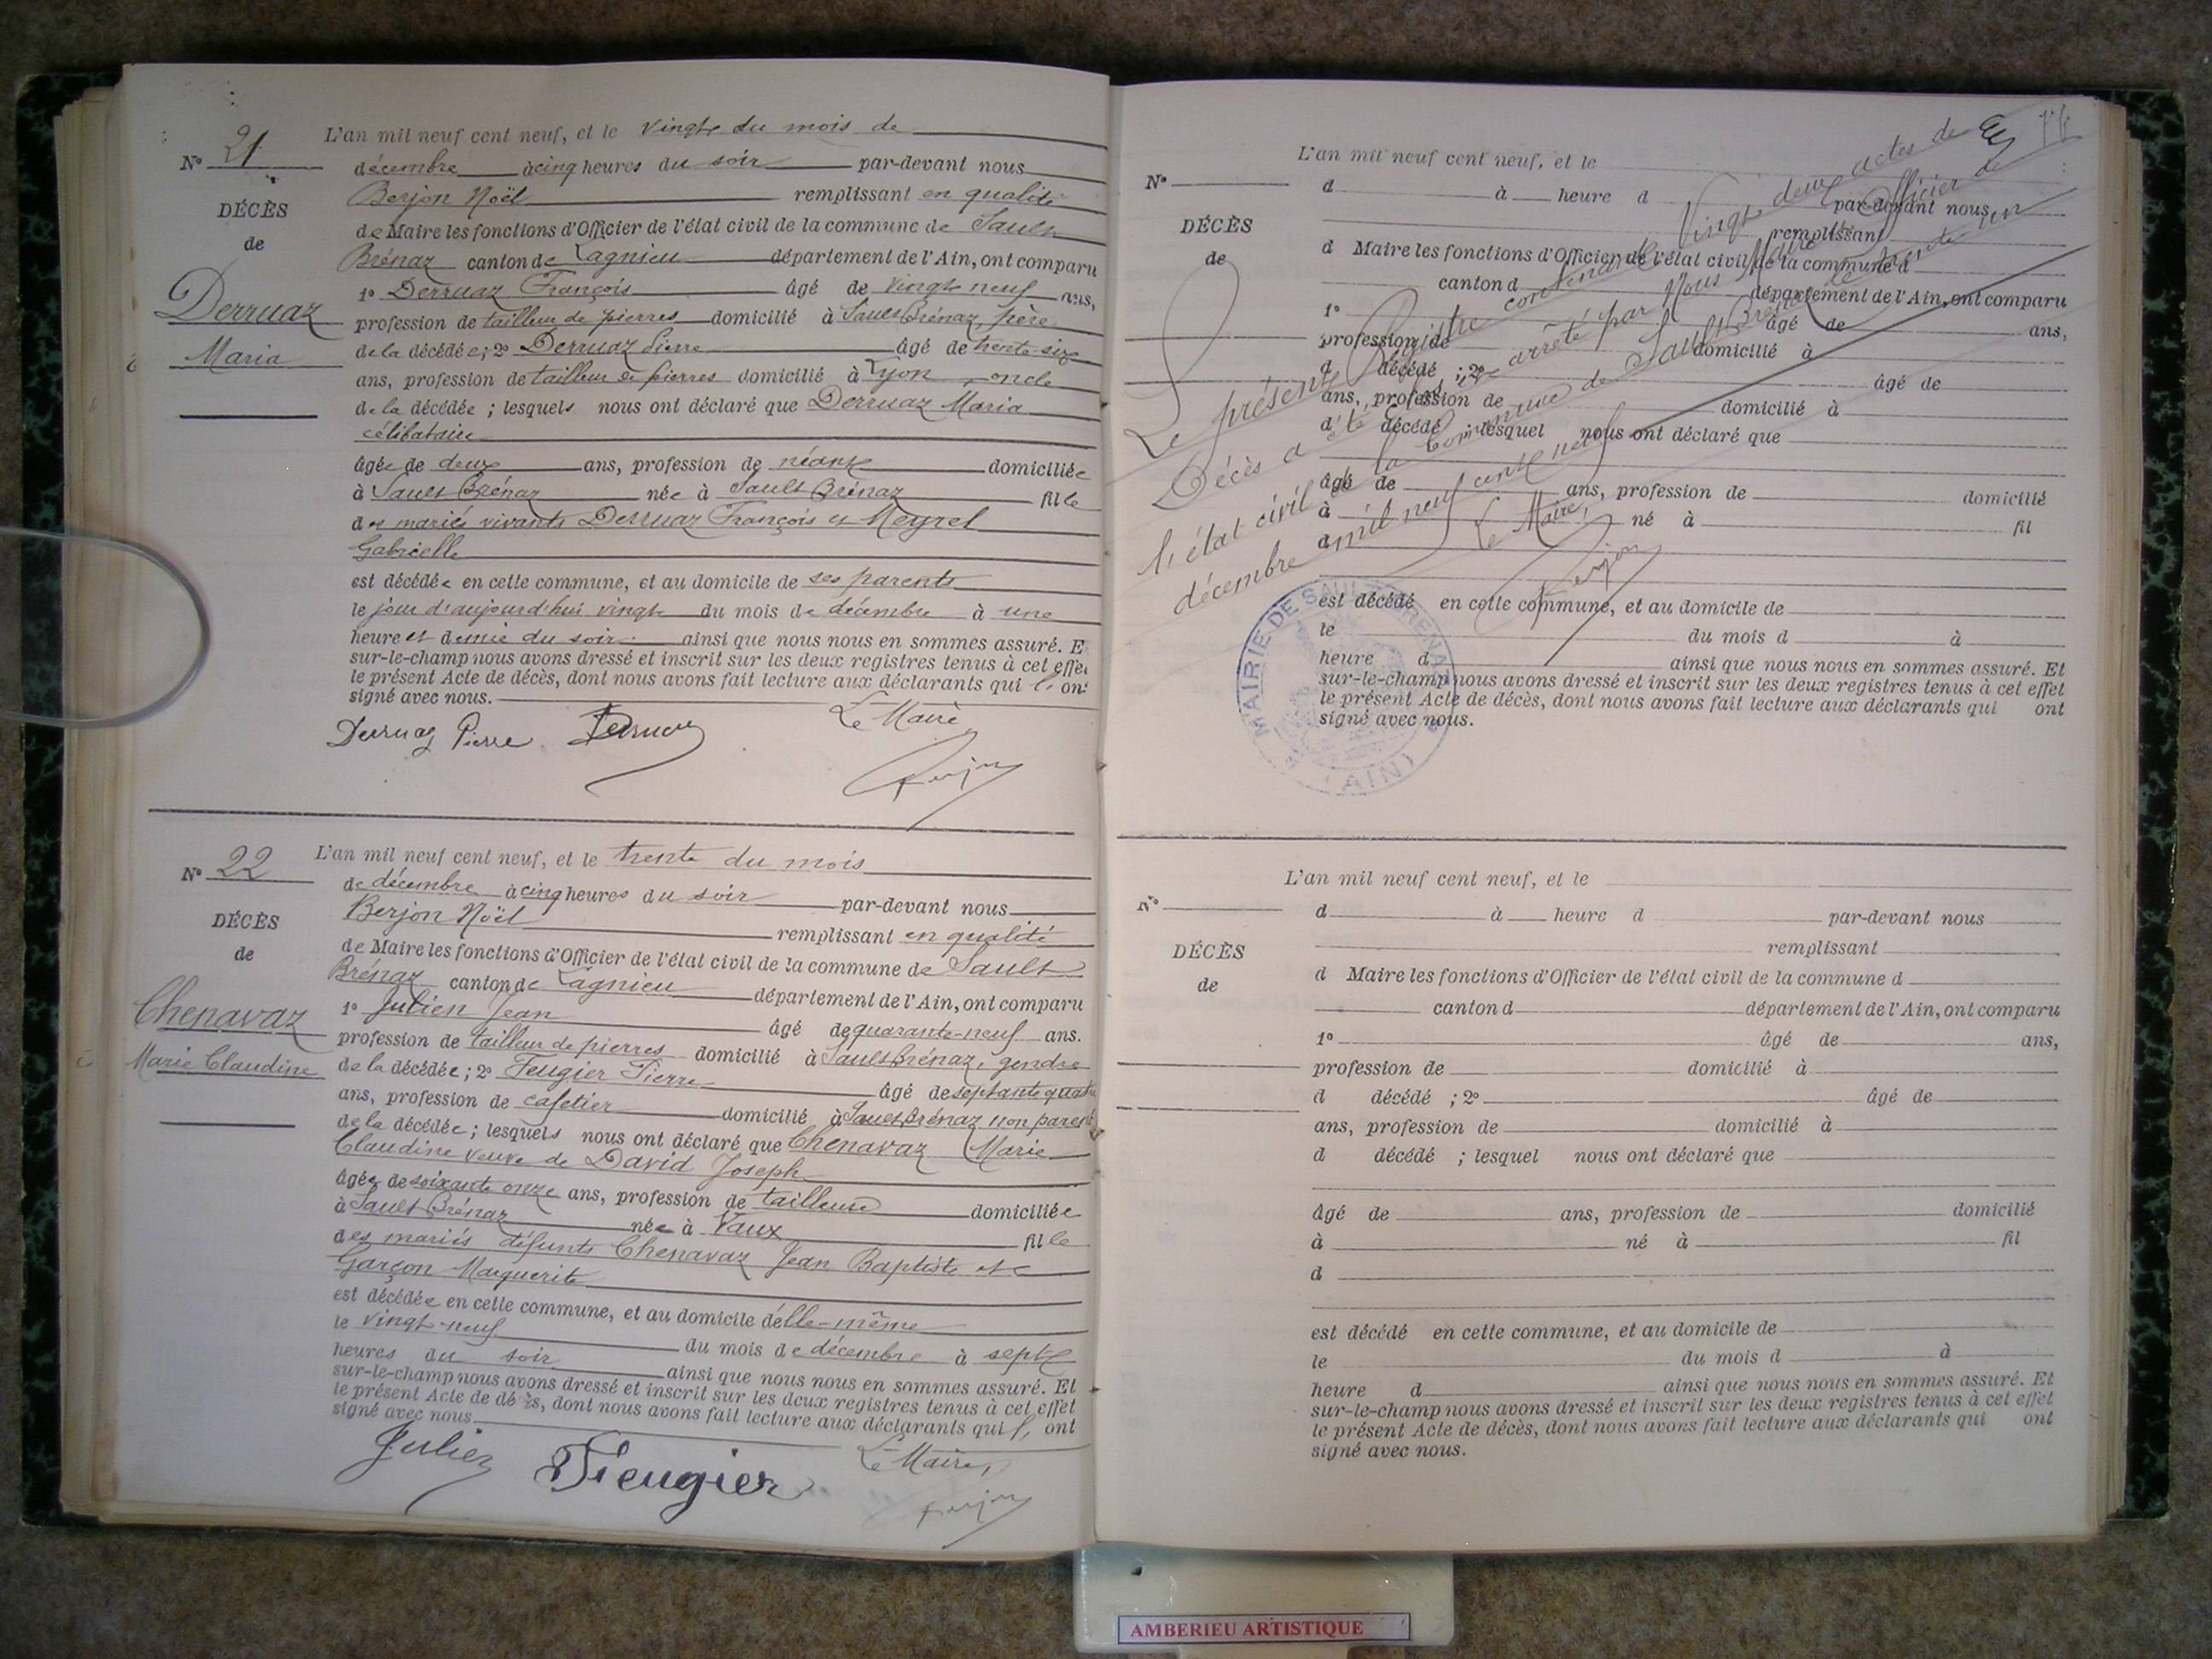 N° 21
DÉCÈS
de
Derruaz
Maria
L'an mil neuf cent neuf, et le vingt du mois de
décembre à cinq heures du soir par-devant nous
Berjon Noël remplissant en qualité
de Maire les fonctions d'Officier de l'état civil de la commune de Sault
Brénaz canton de Lagnieu département de l'Ain, ont comparu
1° Derruaz François âgé de vingt neuf ans,
profession de tailleur de pierres domicilié à Sault Brénaz, père
de la décédée; 2° Derruaz Pierre âgé de trente six
ans, profession de tailleur de pierres domicilié à Lyon, oncle
de la décédée; lesquels nous ont déclaré que Derruaz Maria
célibataire
âgée de deux ans, profession de néant domiciliée
à Sault Brénaz née à Sault Brénaz fille
des mariés vivants Derruaz François et Meyret
Gabrielle
est décédée en cette commune, et au domicile de ses parents
le jour d'aujourd'hui vingt du mois de décembre à une
heure et demie du soir ainsi que nous nous en sommes assuré. E
sur-le-champ nous avons dressé et inscrit sur les deux registres tenus à cet effet
le présent Acte de décès, dont nous avons fait lecture aux déclarants qui l' ont
signé avec nous.
Le Maire
Derruaz Pierre Derruaz
Berjon
N° 22
DÉCÈS
de
Chenavaz
Marie Claudine
L'an mil neuf cent neuf, et le trente du mois
de décembre à cinq heures du soir par-devant nous
Berjon Noël remplissant en qualité
de Maire les fonctions d'Officier de l'état civil de la commune de Sault
Brénaz canton de Lagnieu département de l'Ain, ont comparu
1° Julien Jean âgé de quarante-neuf ans.
profession de tailleur de pierres domicilié à Sault Brénaz, gendre
de la décédée; 2° Feugier Pierre âgé de septante quatre
ans, profession de cafetier domicilié à Sault Brénaz non parent
de la décédée; lesquels nous ont déclaré que Chenavaz Marie
Claudine veuve de David Joseph
âgée de soixante onze ans, profession de tailleuse domiciliée
à Sault Brénaz née à Vaux fille
des mariés défunts Chenavaz Jean Baptiste et
Garçon Marguerite
est décédée en cette commune, et au domicile d'elle-même
le vingt-neuf du mois de décembre à sept
heures du soir ainsi que nous nous en sommes assuré. Et
sur-le-champ nous avons dressé et inscrit sur les deux registres tenus à cet effet
le présent Acte de décès, dont nous avons fait lecture aux déclarants qui l' ont
signé avec nous
Julien Feugier Le Maire,
Berjon
N°
DÉCÈS
de
L'an mil neuf cent neuf, et le
d à heure d par-devant nous
remplissant
d Maire les fonctions d'Officier de l'état civil de la commune d
canton d département de l'Ain, ont comparu
1° âgé de ans,
profession de domicilié à
d décédé ; 2° âgé de
ans, profession de domicilié à
d décédé ; lesquel nous ont déclaré que
âgé de ans, profession de domicilié
à né à fil
d
est décédé en cette commune, et au domicile de
le du mois d à
heure d ainsi que nous nous en sommes assuré. Et
sur-le-champ nous avons dressé et inscrit sur les deux registres tenus à cet effet
le présent Acte de décès, dont nous avons fait lecture aux déclarants qui ont
signé avec nous.
Le présent Registre contenant Vingt deux actes de
Décès a été clos et arrêté par Nous Maire Officier de
l'état civil de la Commune de Sault Brénaz le trente un
décembre mil neuf cent neuf
Le Maire,
Berjon
MAIRIE DE SAULT-BRENAZ
(AIN)
N°
DÉCÈS
de
L'an mil neuf cent neuf, et le
d à heure d par-devant nous
remplissant
d Maire les fonctions d'Officier de l'état civil de la commune d
canton d département de l'Ain, ont comparu
1° âgé de ans,
profession de domicilié à
d décédé ; 2° âgé de
ans, profession de domicilié à
d décédé ; lesquel nous ont déclaré que
âgé de ans, profession de domicilié
à né à fil
d
est décédé en cette commune, et au domicile de
le du mois d à
heure d ainsi que nous nous en sommes assuré. Et
sur-le-champ nous avons dressé et inscrit sur les deux registres tenus à cet effet
le présent Acte de décès, dont nous avons fait lecture aux déclarants qui ont
signé avec nous.
AMBERIEU ARTISTIQUE